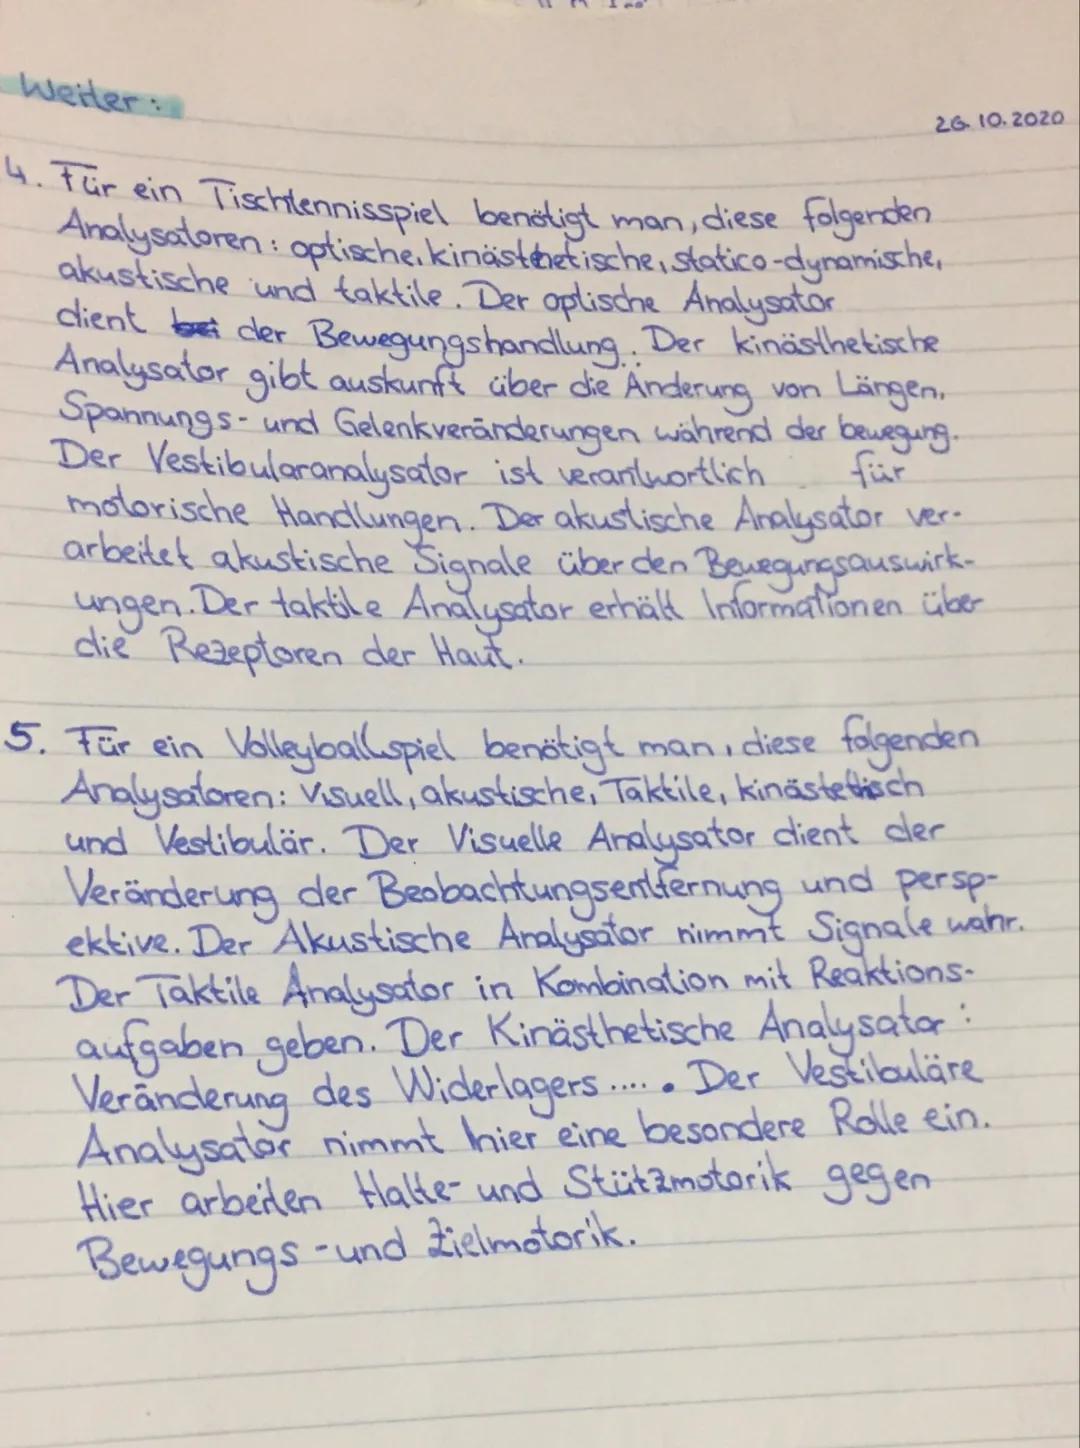 Weiter:
26.10.2020
4. Für ein Tischtennisspiel benötigt man, diese folgenden
Analysatoren: optische, kinästhetische, statico-dynamische,
akustische und taktile. Der optische Analysator
dient der Bewegungshandlung. Der kinästhetische
Analysator gibt auskunft über die Änderung von Längen,
Spannungs- und Gelenkveränderungen während der bewegung.
Der Vestibularanalysator ist verantwortlich für
motorische Handlungen. Der akustische Analysator ver-
arbeitet akustische Signale über den Bewegungsauswirk-
ungen. Der taktile Analysator erhält Informationen über
die Rezeptoren der Haut.
5. Für ein Volleyballspiel benötigt man, diese folgenden
Analysatoren: Visuell, akustische, Taktile, kinästetisch
und Vestibulär. Der Visuelle Analysator dient der
Veränderung der Beobachtungsentfernung und persp-
ektive. Der Akustische Analysator nimmt Signale wahr.
Der Taktile Analysator in Kombination mit Reaktions-
aufgaben geben. Der Kinästhetische Analysator:
Veränderung des Widerlagers..... Der Vestibuläre
Analysator nimmt hier eine besondere Rolle ein.
Hier arbeiten Halte- und Stützmotorik gegen
Bewegungs-und Zielmotorik.